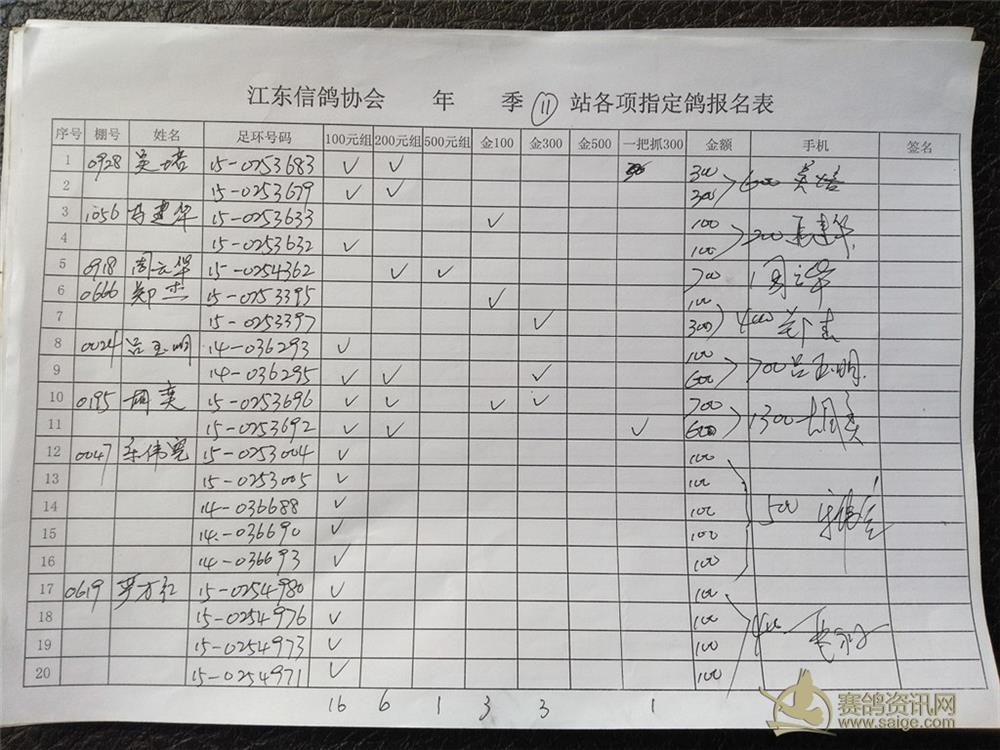 江东信鸽协会 年 季 11 站各项指定鸽报名表
序号 棚号 姓名 足环号码 100元组 200元组 500元组 金100 金300 金500 一把抓300 金额 手机 签名
1 0928 吴培 15-0253683 ✓ ✓ 300 600 吴培
2 15-0253679 ✓ ✓ 300
3 1056 马建华 15-0253633 ✓ 100 200
4 15-0253632 ✓ 100
5 0918 周云华 15-0254362 ✓ ✓ 700 周云华
6 0666 郑杰 15-0253395 ✓ 100 400 郑杰
7 15-0253397 ✓ 300
8 0024 吕玉明 14-036293 ✓ 100 700 吕玉明
9 14-036295 ✓ ✓ ✓ 600
10 0195 胡奕 15-0253696 ✓ ✓ ✓ ✓ 700 1300 胡奕
11 15-0253692 ✓ ✓ ✓ 600
12 0047 15-0253004 ✓ 100 500
13 15-0253005 ✓ 100
14 14-036688 ✓ 100
15 14-036690 ✓ 100
16 14-036693 ✓ 100
17 0619 15-0254980 ✓ 100 400
18 15-0254976 ✓ 100
19 15-0254973 ✓ 100
20 15-0254971 ✓ 100
16 6 1 3 3 1
赛鸽资讯网
www.saige.com